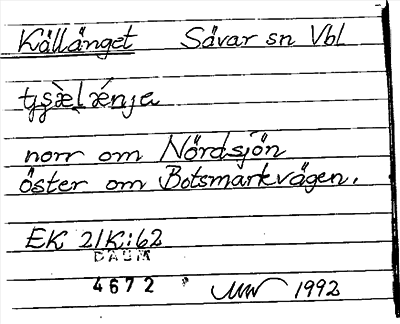 Källänget Sävar sn Vbl
norr om Nördsjön
öster om Botsmarkvägen.
EK 21K:62
DAUM
4672
1992